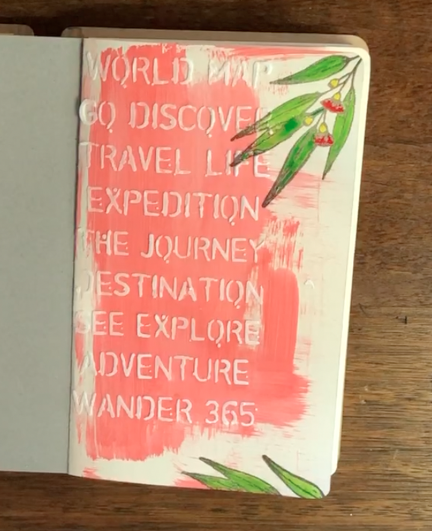 WORLD MAP
GO DISCOVER
TRAVEL LIFE
EXPEDITION
THE JOURNEY
DESTINATION
SEE EXPLORE
ADVENTURE
WANDER 365